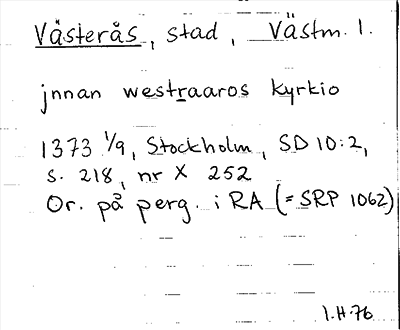 Västerås, stad, Västm. l.
jnnan westraaros kyrkio
1373 1/9, Stockholm, SD 10:2,
s. 218, nr X 252
Or. på perg. i RA (= SRP 1062)
I.H. 76